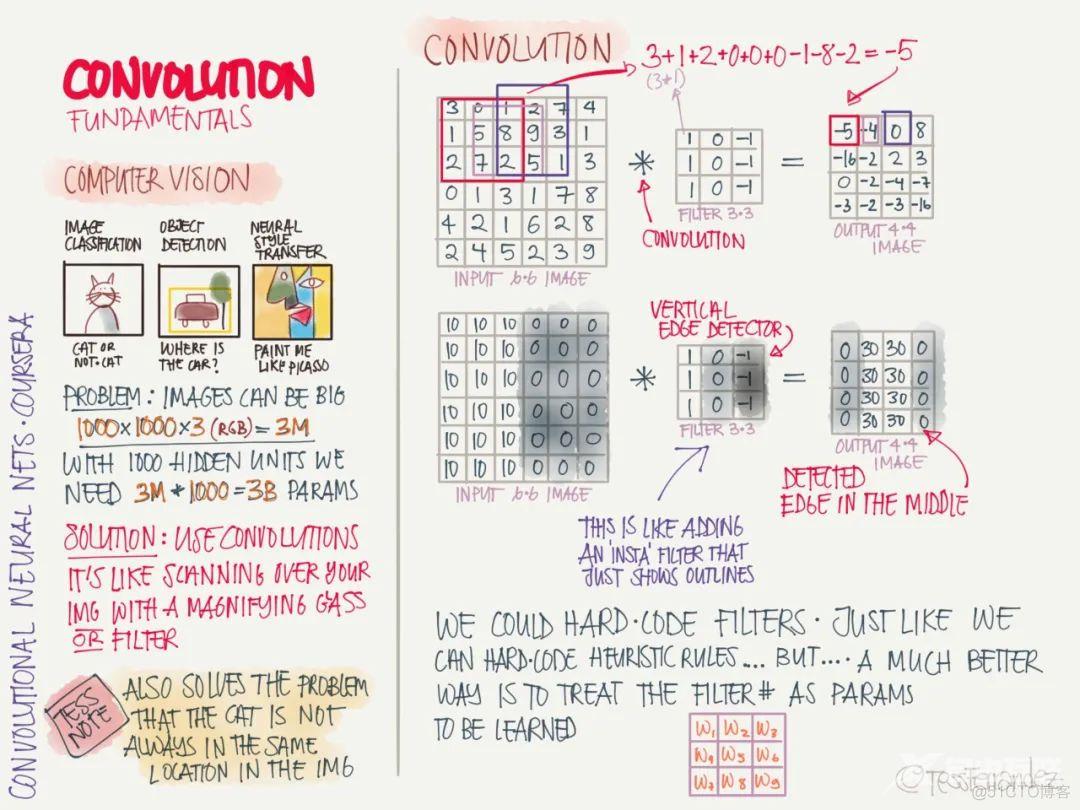 CONVOLUTIONAL NEURAL NETS · COURSERA
CONVOLUTION
FUNDAMENTALS
COMPUTER VISION
IMAGE CLASSIFICATION
OBJECT DETECTION
NEURAL STYLE TRANSFER
CAT OR NOT-CAT
WHERE IS THE CAR?
PAINT ME LIKE PICASSO
PROBLEM: IMAGES CAN BE BIG
1000×1000×3 (RGB) = 3M
WITH 1000 HIDDEN UNITS WE
NEED 3M * 1000 = 3B PARAMS
SOLUTION: USE CONVOLUTIONS
IT'S LIKE SCANNING OVER YOUR
IMG WITH A MAGNIFYING GASS
OR FILTER
TESS NOTE
ALSO SOLVES THE PROBLEM
THAT THE CAT IS NOT
ALWAYS IN THE SAME
LOCATION IN THE IMG
CONVOLUTION
3+1+2+0+0+0-1-8-2=-5
(3*1)
3 0 1 2 7 4
1 5 8 9 3 1
2 7 2 5 1 3
0 1 3 1 7 8
4 2 1 6 2 8
2 4 5 2 3 9
INPUT 6·6 IMAGE
*
CONVOLUTION
1 0 -1
1 0 -1
1 0 -1
FILTER 3·3
=
-5 -4 0 8
-16 -2 2 3
0 -2 -4 -7
-3 -2 -3 -16
OUTPUT 4·4
IMAGE
10 10 10 0 0 0
10 10 10 0 0 0
10 10 10 0 0 0
10 10 10 0 0 0
10 10 10 0 0 0
10 10 10 0 0 0
INPUT 6·6 IMAGE
*
VERTICAL
EDGE DETECTOR
1 0 -1
1 0 -1
1 0 -1
FILTER 3·3
=
0 30 30 0
0 30 30 0
0 30 30 0
0 30 30 0
OUTPUT 4·4
IMAGE
DETECTED
EDGE IN THE MIDDLE
THIS IS LIKE ADDING
AN 'INSTA' FILTER THAT
JUST SHOWS OUTLINES
WE COULD HARD·CODE FILTERS · JUST LIKE WE
CAN HARD·CODE HEURISTIC RULES.... BUT.... A MUCH BETTER
WAY IS TO TREAT THE FILTER # AS PARAMS
TO BE LEARNED
W1 W2 W3
W4 W5 W6
W7 W8 W9
@TessFerrandez
@51CTO博客